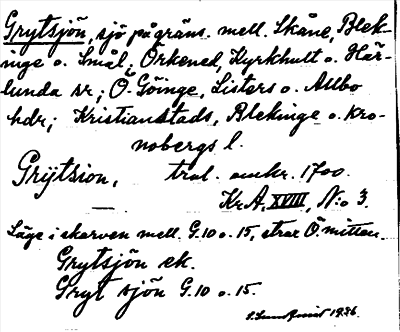 Grytsjön, sjö på gräns. mell. Skåne, Blek-
inge o. Smål; Örkened, Kyrkhult o. Här-
lunda sr; Ö. Göinge, Listers o. Allbo
hdr; Kristianstads, Blekinge o. Kro-
nobergs l.
Grÿtsion, trol. omkr. 1700.
Kr A, XVIII, N:o 3.
Läge i skarven mell. G.10 o. 15, strax Ö. mitten.
Grytsjön ek.
Gryt sjön G.10 o. 15.
1926.